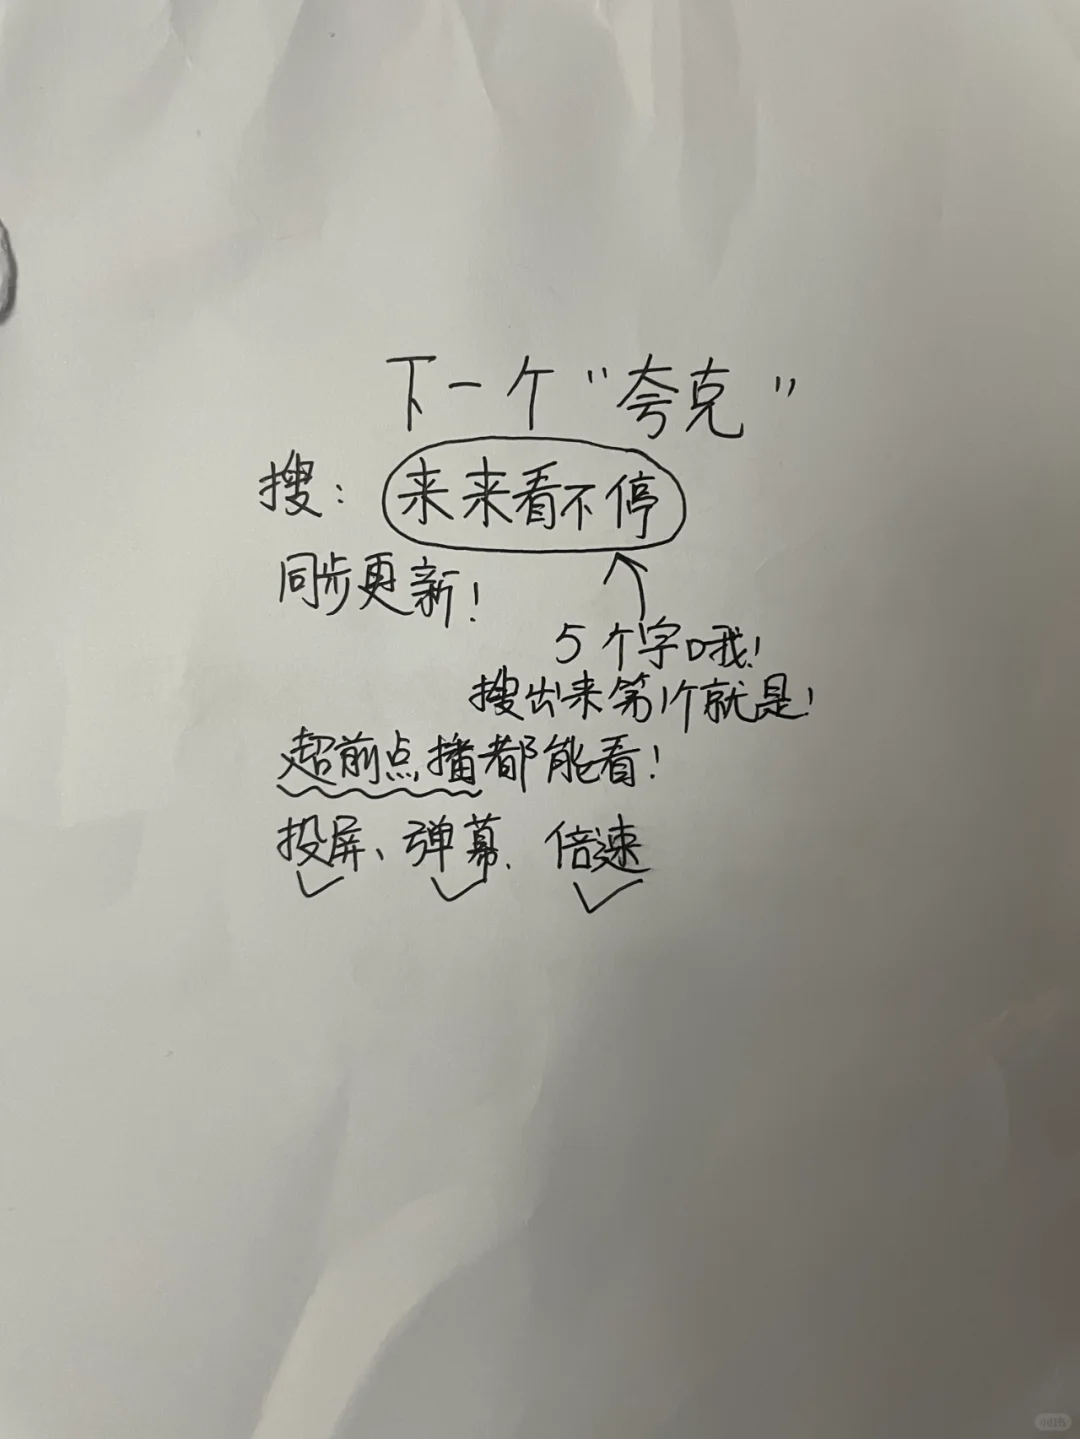 下一个“夸克”
搜：来来看不停
同步更新！
5个字哦！
搜出来第1个就是！
超前点播都能看！
投屏、弹幕、倍速
小红书